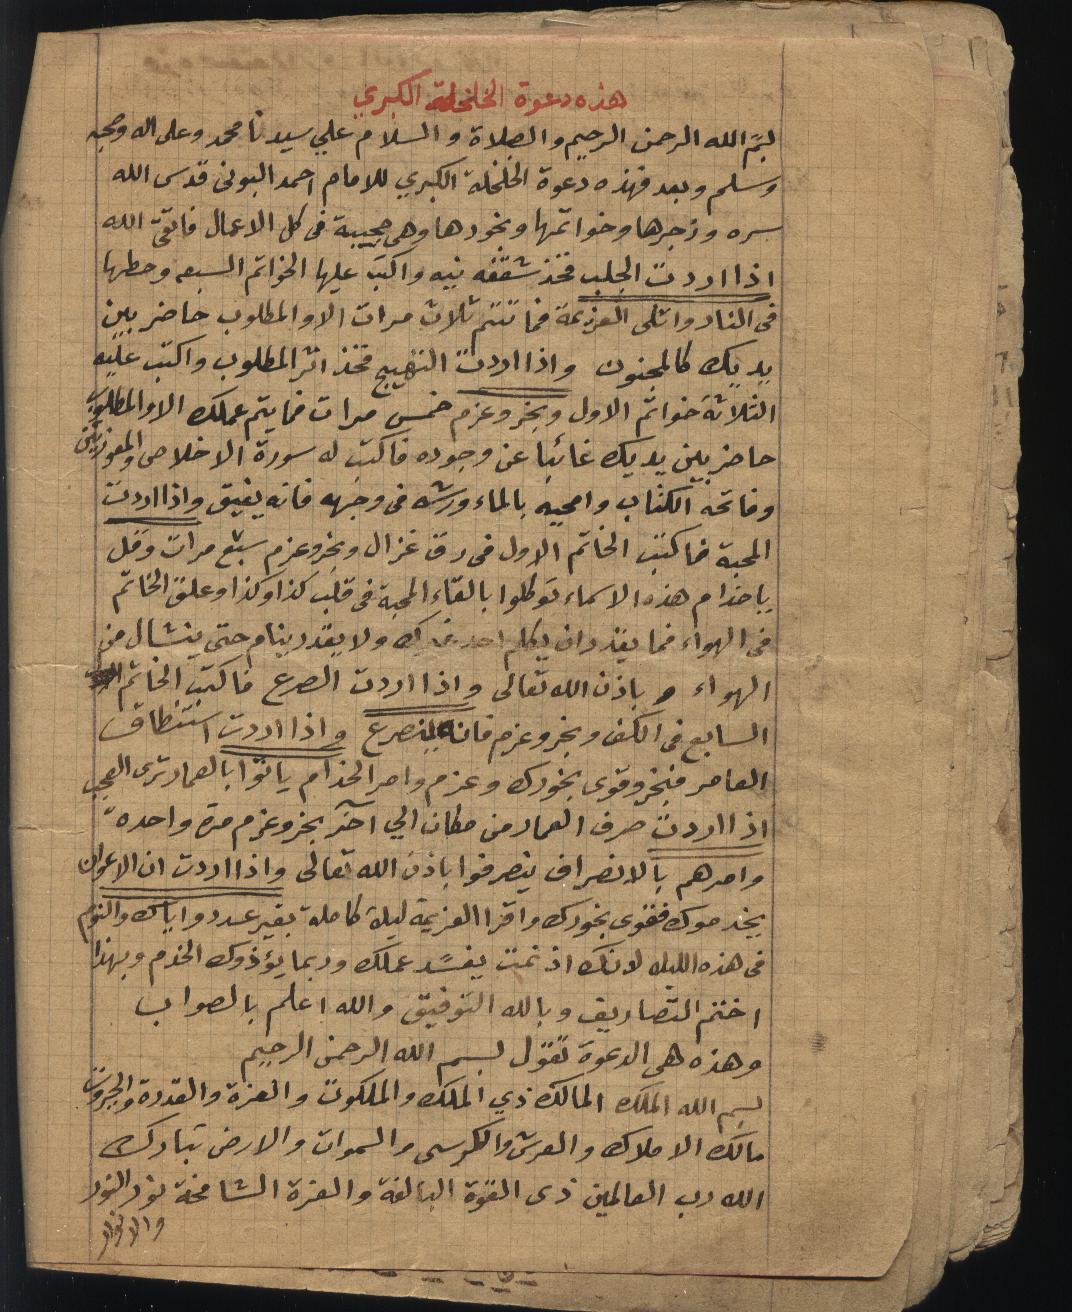 هذه دعوة الخلخلة الكبري
بسم الله الرحمن الرحيم والصلاة والسلام علي سيدنا محمد وعلى اله وصحبه
وسلم وبعد فهذه دعوة الخلخلة الكبري للامام احمد البونى قدس الله
سره وزجرها وخواتمها وبخورها وهى عجيبة فى كل الاعمال فاتقى الله
اذا اردت الجلب فخذ شقفه نيه واكتب عليها الخواتم السبعه وحطها
فى النار واتلى العزيمة فما تتم ثلاث مرات الا والمطلوب حاضر بين
يديك كالمجنون واذا اردت التهييج فخذ اثر المطلوب واكتب عليه
الثلاثة خواتم الاول وبخر وعزم خمس مرات فما يتم عملك الا والمطلوب
حاضر بين يديك غائبا عن وجوده فاكتب له سورة الاخلاص والمعوزتين
وفاتحة الكتاب وامحيه بالماء ورشه فى وجهه فانه يفيق واذا اردت
المحبة فاكتب الخاتم الاول فى رق غزال وبخر وعزم سبع مرات وقل
ياخدام هذه الاسماء توكلوا بالقاء المحبة فى قلب كذا وكذا وعلق الخاتم
فى الهواء فما يقدر ان يكلم احد غيرك ولا يقدر ينام حتى ينشال من
الهواء وباذن الله تعالى واذا اردت الصرع فاكتب الخاتم
السابع فى الكف وبخر وعزم فانه ينصرع واذا اردت استنطاق
العامر فبخر وقوى بخورك وعزم وامر الخدام ياتوا بالعمار ترى العجب
اذا اردت صرف العمار من مكان الي آخر بخر وعزم مرة واحده
وامرهم بالانصراف ينصرفوا باذن الله تعالى واذا اردت ان الاعوان
يخدموك فقوى بخورك واقرا العزيمة ليلة كاملة بغير عدد واياك والنوم
فى هذه الليله لانك اذ نمت يفسد عملك وربما يؤذوك الخدم وبهذا
اختم التصاريف وبالله التوفيق والله اعلم بالصواب
وهذه هى الدعوة تقول بسم الله الرحمن الرحيم
بسم الله الملك المالك ذي الملك والملكوت والعزة والقدرة والجبروت
مالك الاملاك والعرش والكرسى والسموات والارض تبارك
الله رب العالمين ذى القوة البالغة والعزة الشامخة نور النور
والانوار